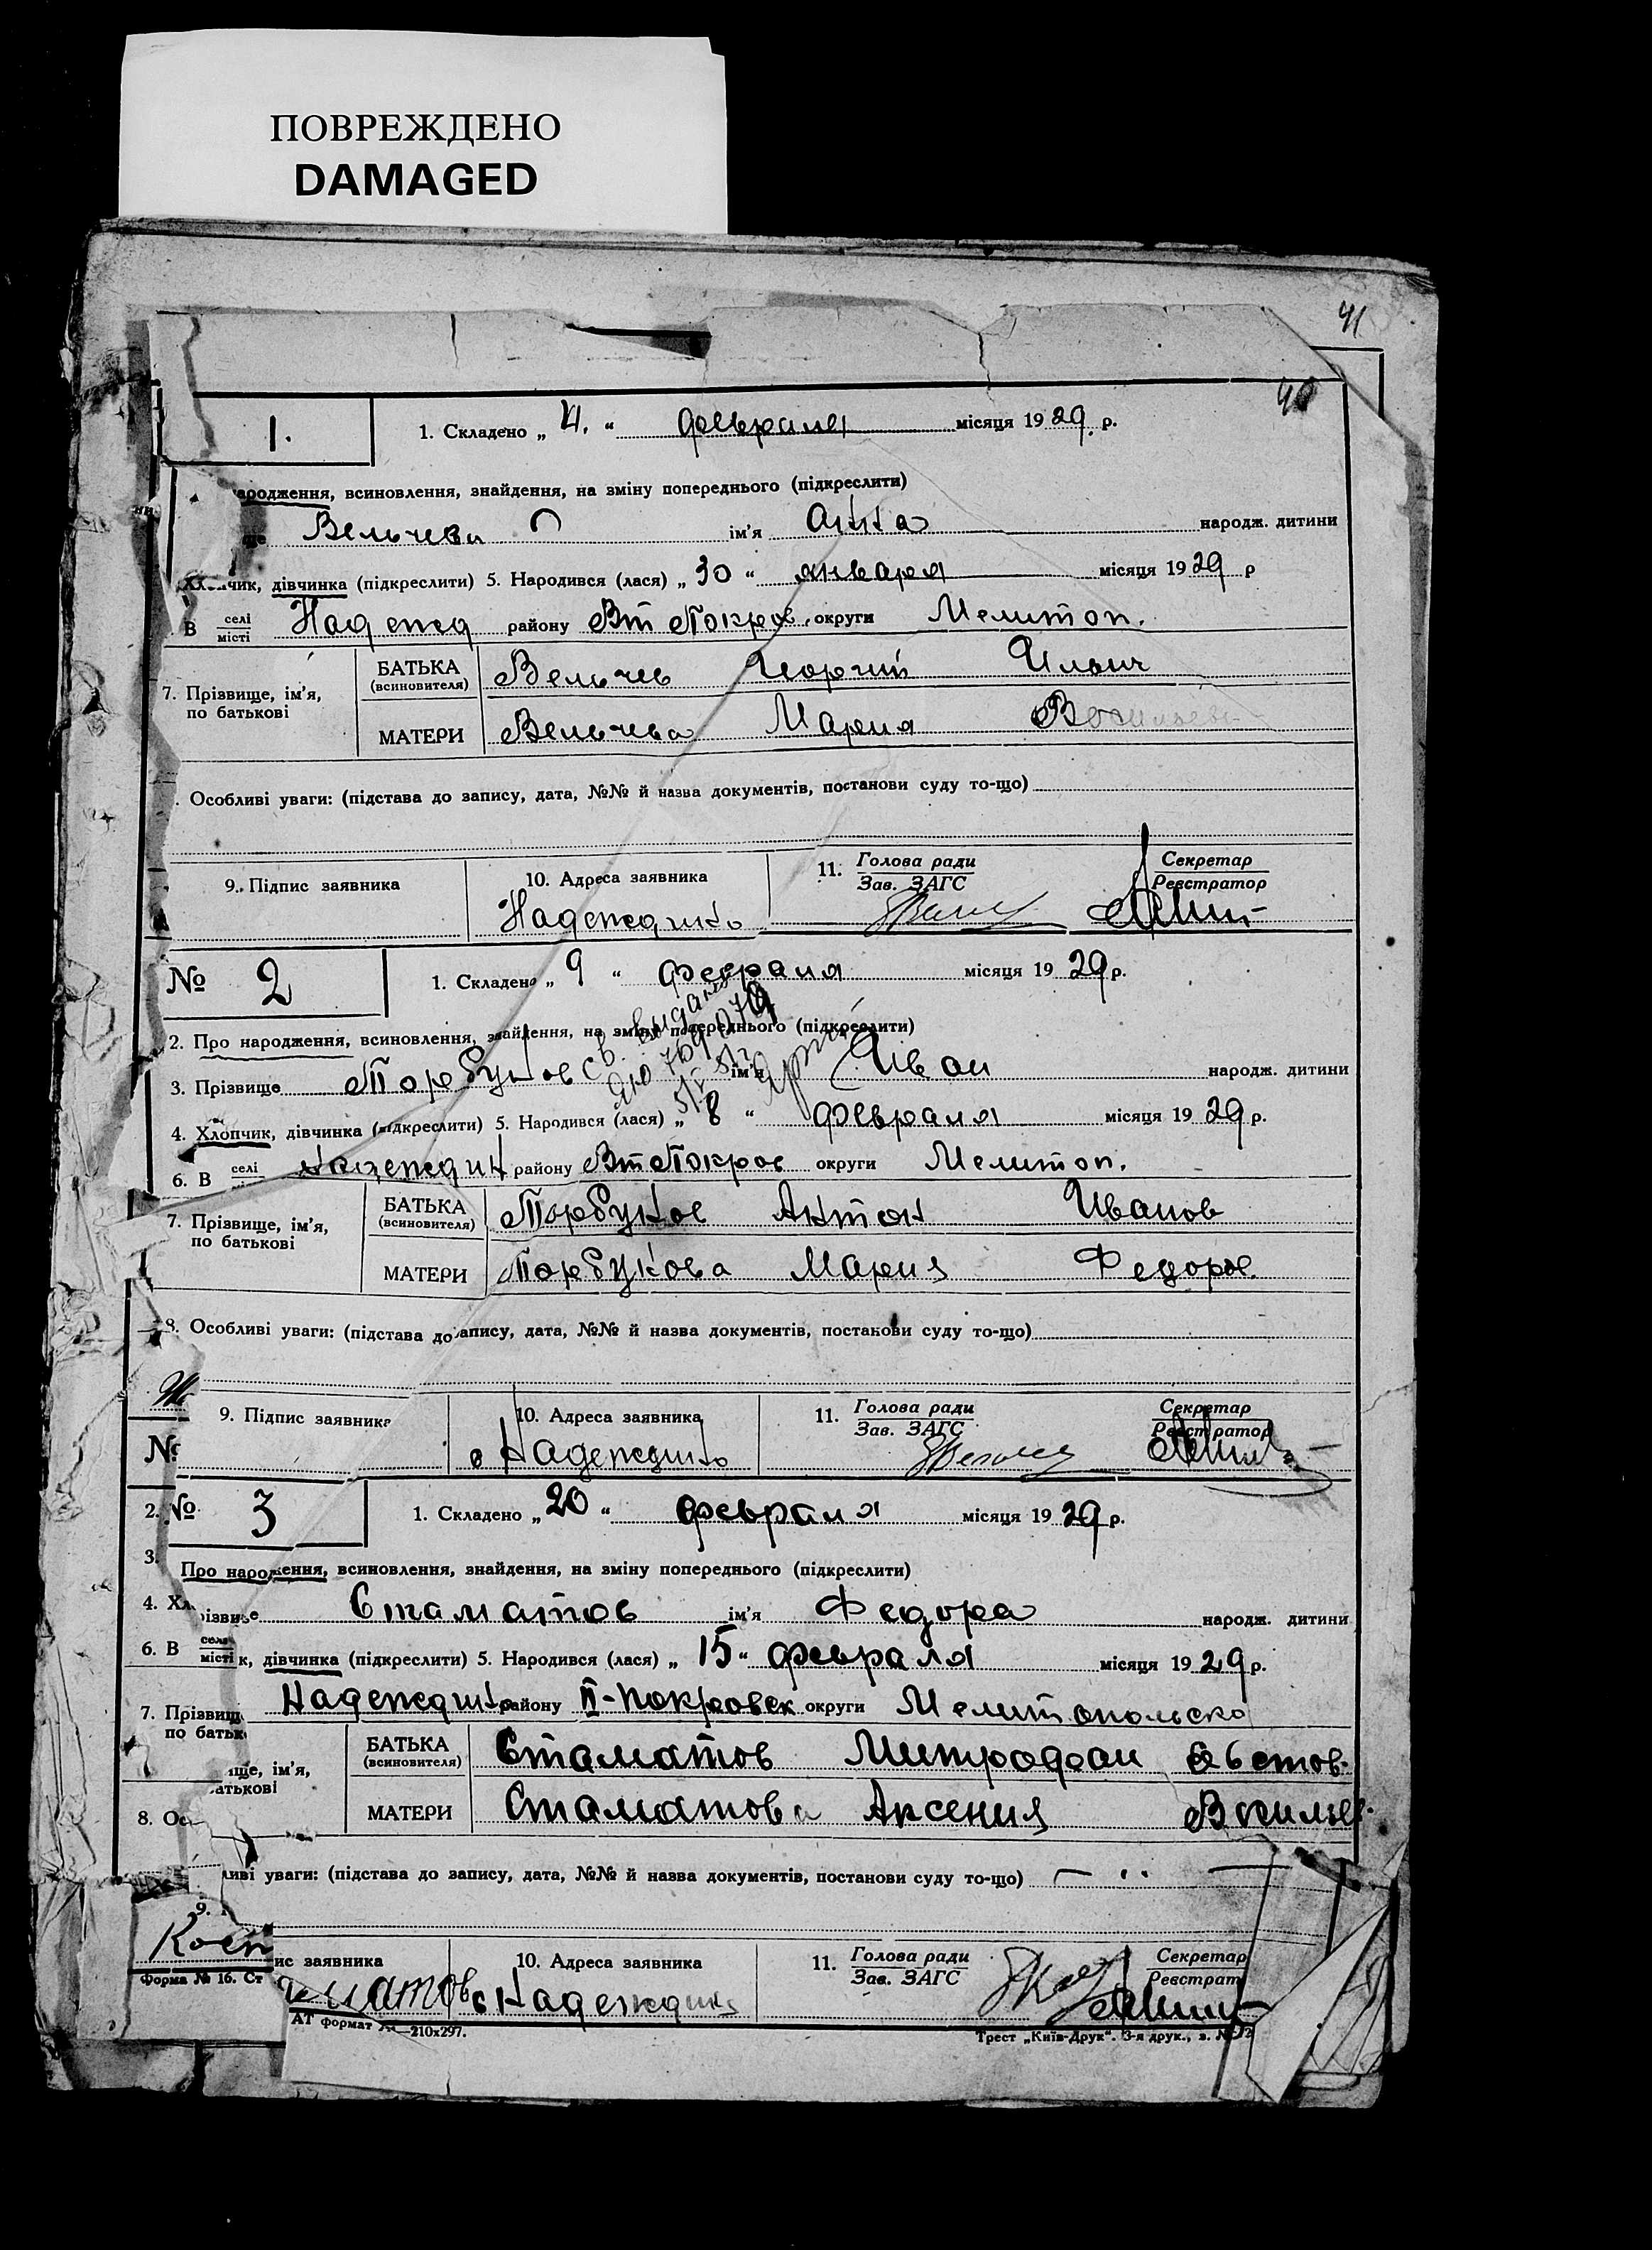 ПОВРЕЖДЕНО
DAMAGED
41
40
1.
1. Складено „ 4. “ февраля місяця 1929 р.
ародження, всиновлення, знайдення, на зміну попереднього (підкреслити)
ще Вельчева ім'я Анна народж. дитини
чик, дівчинка (підкреслити) 5. Народився (лася) „ 30 “ января місяця 1929 р
В селі місті Надежд району Вт Покров. округи Мелитоп.
7. Прізвище, ім'я, по батькові
БАТЬКА (всиновителя) Вельчев Георгий Ильич
МАТЕРИ Вельчева Мария Васильев
. Особливі уваги: (підстава до запису, дата, №№ й назва документів, постанови суду то-що)
9. Підпис заявника
10. Адреса заявника
11. Голова ради Зав. ЗАГС
Секретар Реєстратор
Надеждино
№ 2
1. Складено „ 9 “ февраля місяця 1929 р.
св. выдано
5/V 51 г.
2. Про народження, всиновлення, знайдення, на зміну попереднього (підкреслити)
3. Прізвище Торбунов ім'я Иван народж. дитини
4. Хлопчик, дівчинка (підкреслити) 5. Народився (лася) „ 8 “ февраля місяця 1929 р.
6. В селі Надеждин району Вт Покров округи Мелитоп.
7. Прізвище, ім'я, по батькові
БАТЬКА (всиновителя) Торбунов Антон Иванов
МАТЕРИ Торбунова Мария Федоров.
8. Особливі уваги: (підстава до апису, дата, №№ й назва документів, постанови суду то-що)
9. Підпис заявника
10. Адреса заявника
11. Голова ради Зав. ЗАГС
Секретар Реєстратор
с Надеждино
№
2. № 3
1. Складено „ 20 “ февраля місяця 1929 р.
3.
Про народження, всиновлення, знайдення, на зміну попереднього (підкреслити)
4. Хл різвище Стаматов ім'я Федора народж. дитини
6. В селі місті к, дівчинка (підкреслити) 5. Народився (лася) „ 15 “ февраля місяця 1929 р.
Надеждино району II-Покровск округи Мелитопольско
7. Прізвищ по батьк
ще, ім'я, атькові
БАТЬКА (всиновителя) Стаматов Митрофан Евстов.
МАТЕРИ Стаматова Аксения Васильев.
8. Ос
ливі уваги: (підстава до запису, дата, №№ й назва документів, постанови суду то-що)
9.
ис заявника
10. Адреса заявника
11. Голова ради Зав. ЗАГС
Секретар Реєстрат
матов
с Надеждин
Форма № 16. Ст
АТ формат А4—210x297.
Трест „Київ-Друк". 3-я друк., з. №